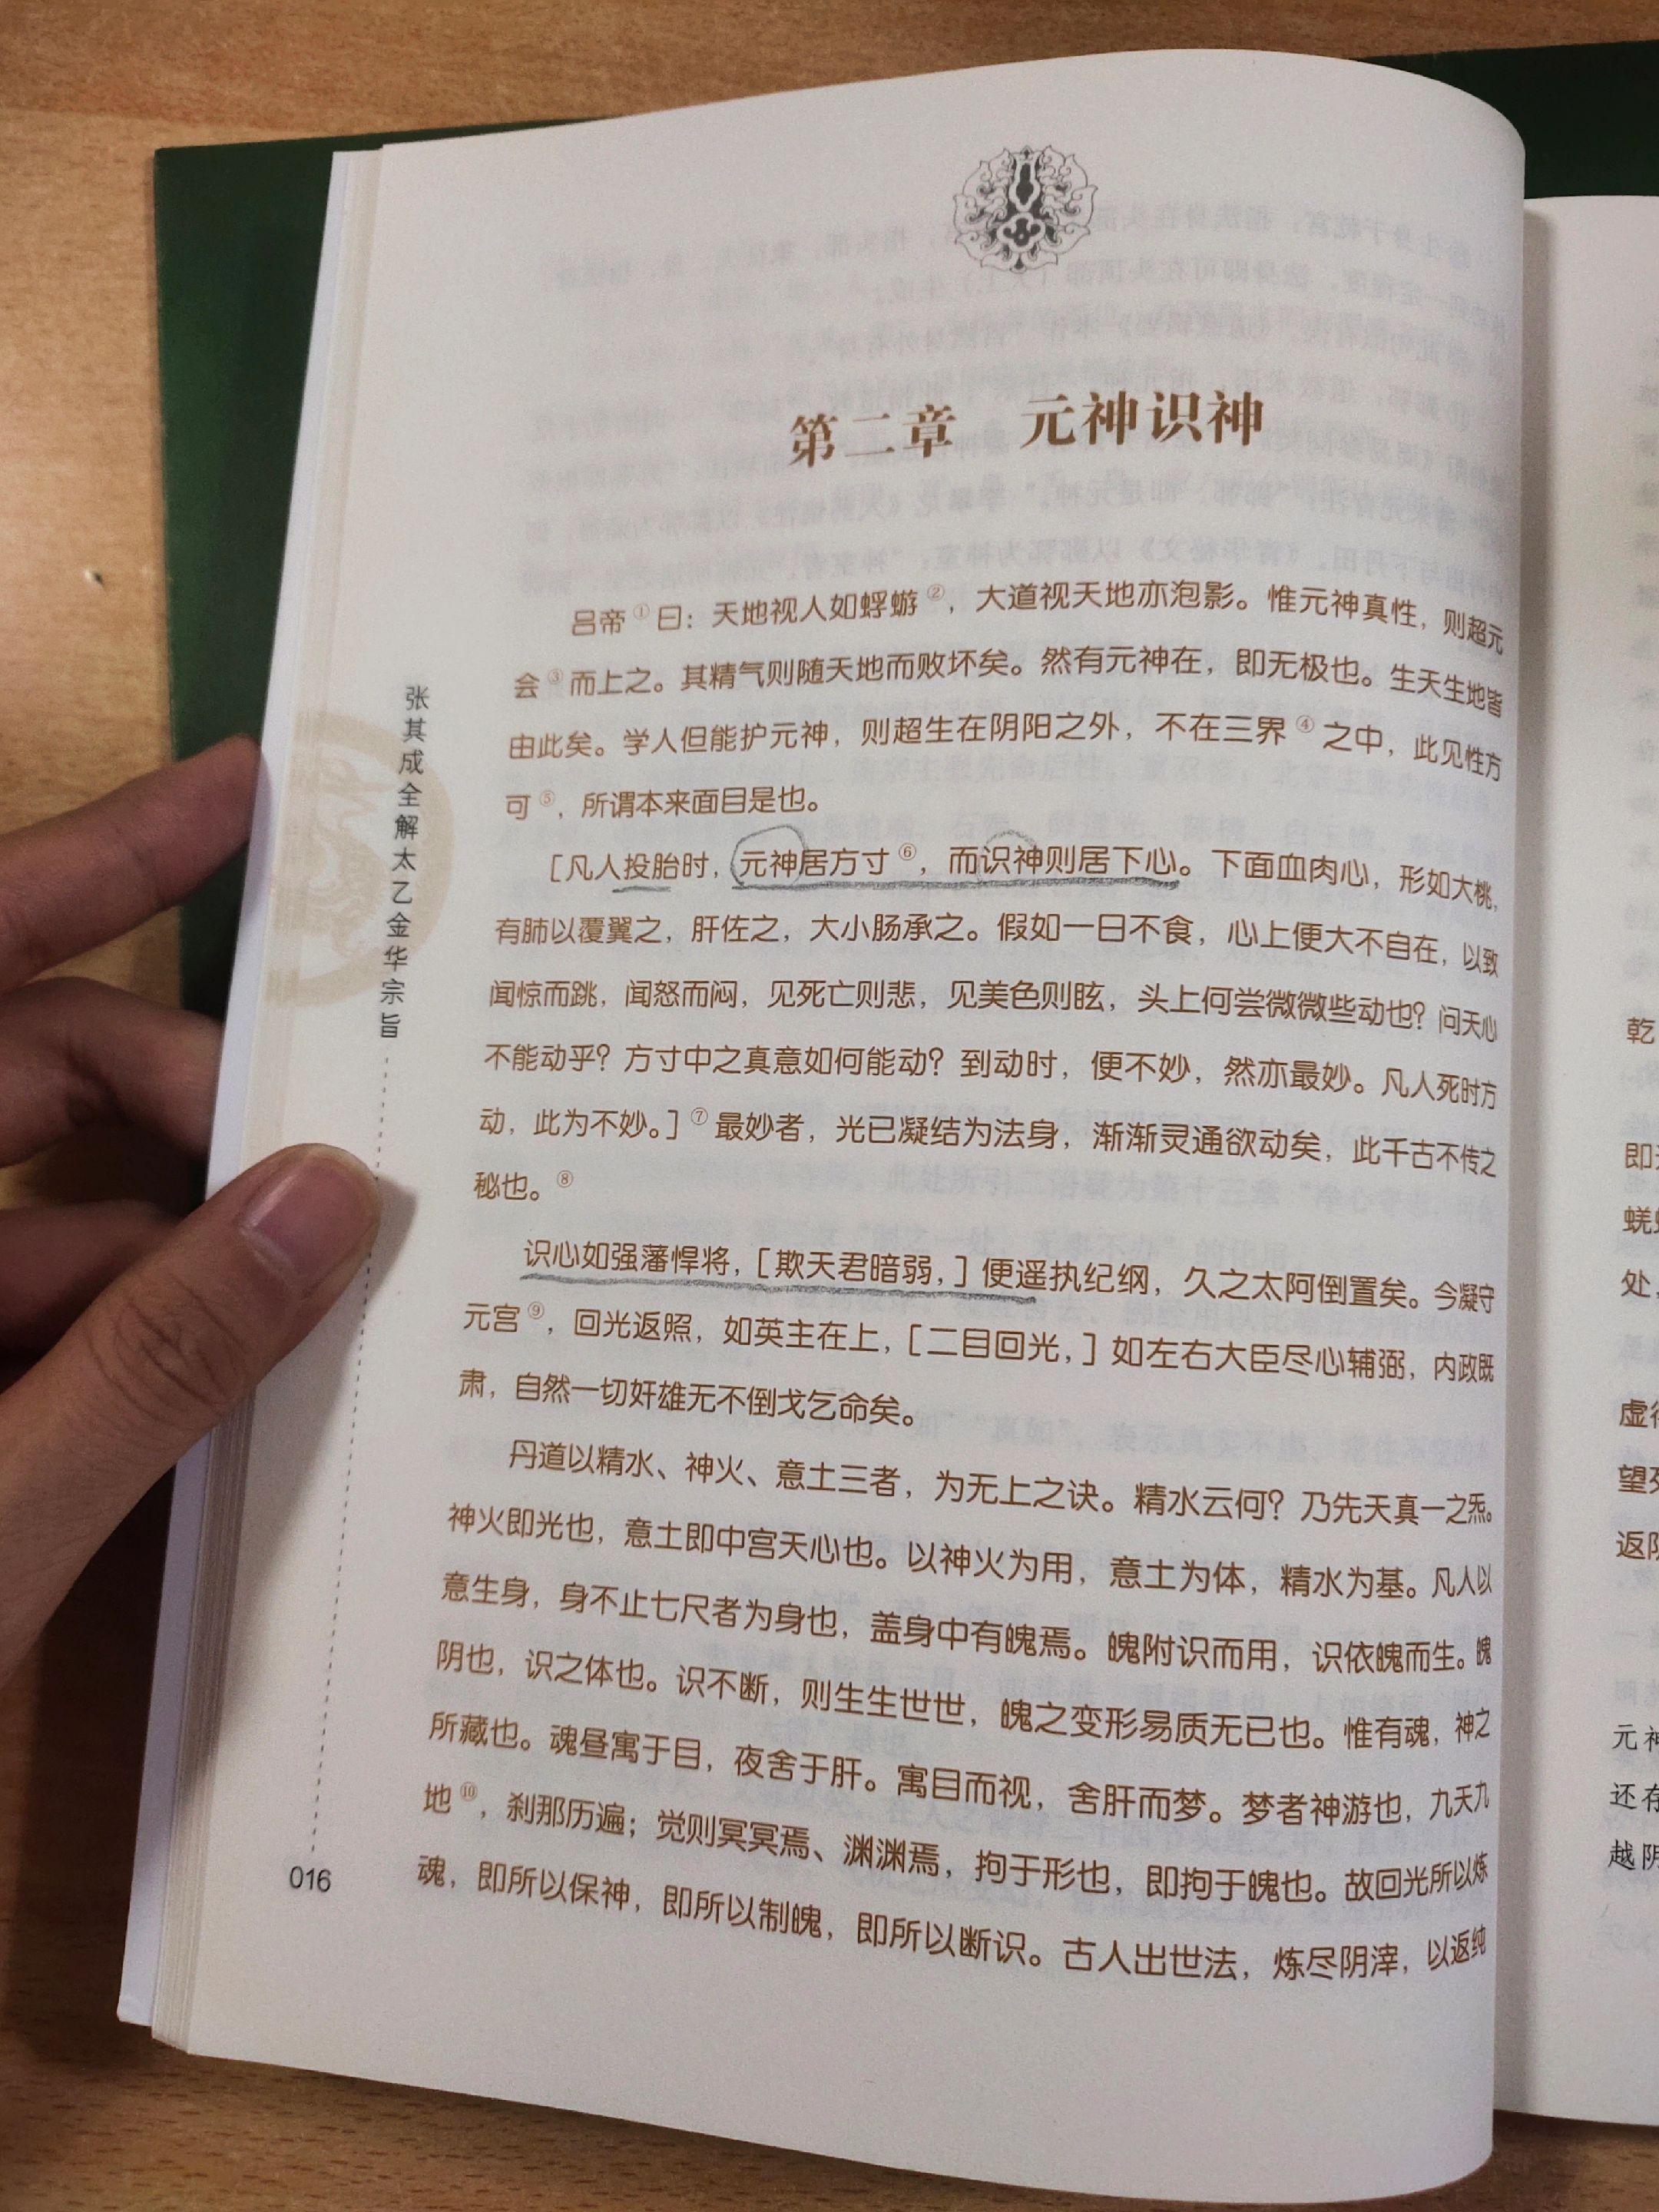 第二章 元神识神
吕帝①曰：天地视人如蜉蝣②，大道视天地亦泡影。惟元神真性，则超元
会③而上之。其精气则随天地而败坏矣。然有元神在，即无极也。生天生地皆
由此矣。学人但能护元神，则超生在阴阳之外，不在三界④之中，此见性方
可⑤，所谓本来面目是也。
［凡人投胎时，元神居方寸⑥，而识神则居下心。下面血肉心，形如大桃，
有肺以覆翼之，肝佐之，大小肠承之。假如一日不食，心上便大不自在，以致
闻惊而跳，闻怒而闷，见死亡则悲，见美色则眩，头上何尝微微些动也？问天心
不能动乎？方寸中之真意如何能动？到动时，便不妙，然亦最妙。凡人死时方
动，此为不妙。］⑦最妙者，光已凝结为法身，渐渐灵通欲动矣，此千古不传之
秘也。⑧
识心如强藩悍将，［欺天君暗弱，］便遥执纪纲，久之太阿倒置矣。今凝守
元宫⑨，回光返照，如英主在上，［二目回光，］如左右大臣尽心辅弼，内政既
肃，自然一切奸雄无不倒戈乞命矣。
丹道以精水、神火、意土三者，为无上之诀。精水云何？乃先天真一之炁。
神火即光也，意土即中宫天心也。以神火为用，意土为体，精水为基。凡人以
意生身，身不止七尺者为身也，盖身中有魄焉。魄附识而用，识依魄而生。魄
阴也，识之体也。识不断，则生生世世，魄之变形易质无已也。惟有魂，神之
所藏也。魂昼寓于目，夜舍于肝。寓目而视，舍肝而梦。梦者神游也，九天九
地⑩，刹那历遍；觉则冥冥焉、渊渊焉，拘于形也，即拘于魄也。故回光所以炼
魂，即所以保神，即所以制魄，即所以断识。古人出世法，炼尽阴滓，以返纯
张其成全解太乙金华宗旨
016
乾
即
处，
虚
望
返
元神
还存
越阴